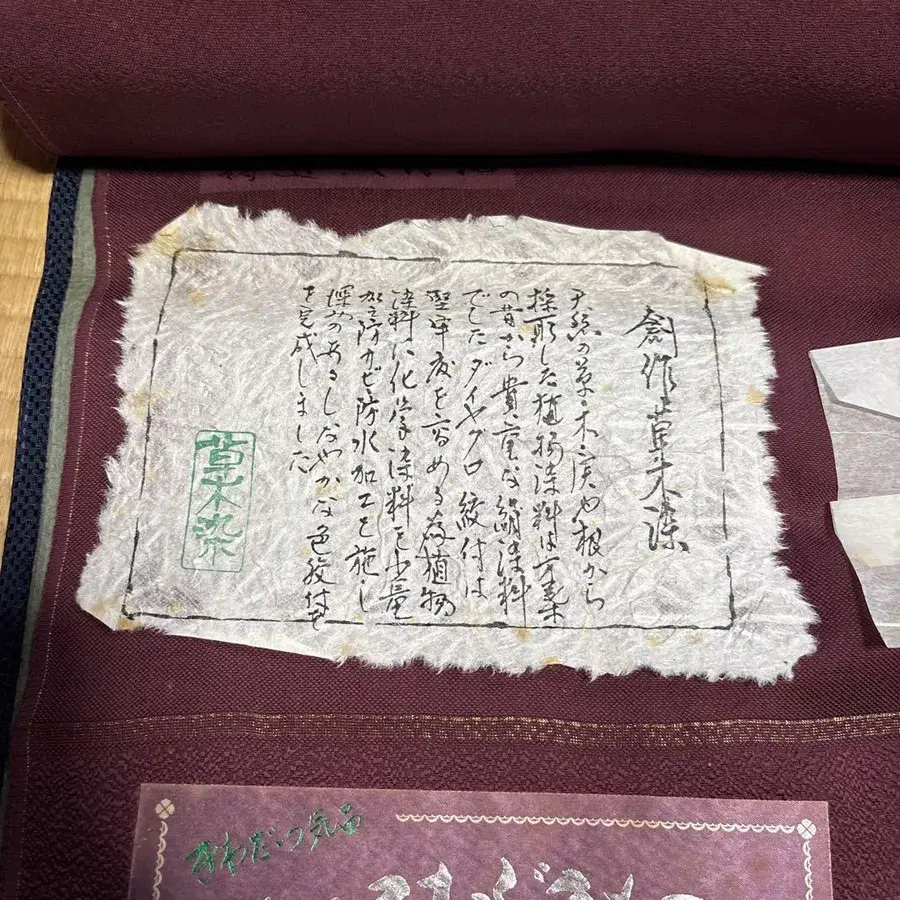 創作草木染
天然の草・木・実や根から
採取した植物染料は万葉
の昔から貴重な絹染料
でしたダイヤグロ絞付は
堅牢度を高める為植物
染料に化学染料を少量
加え防カビ防水加工を施し
深みのあるしなやかな色絞付を
を完成しました
草木染
きわだつ気品